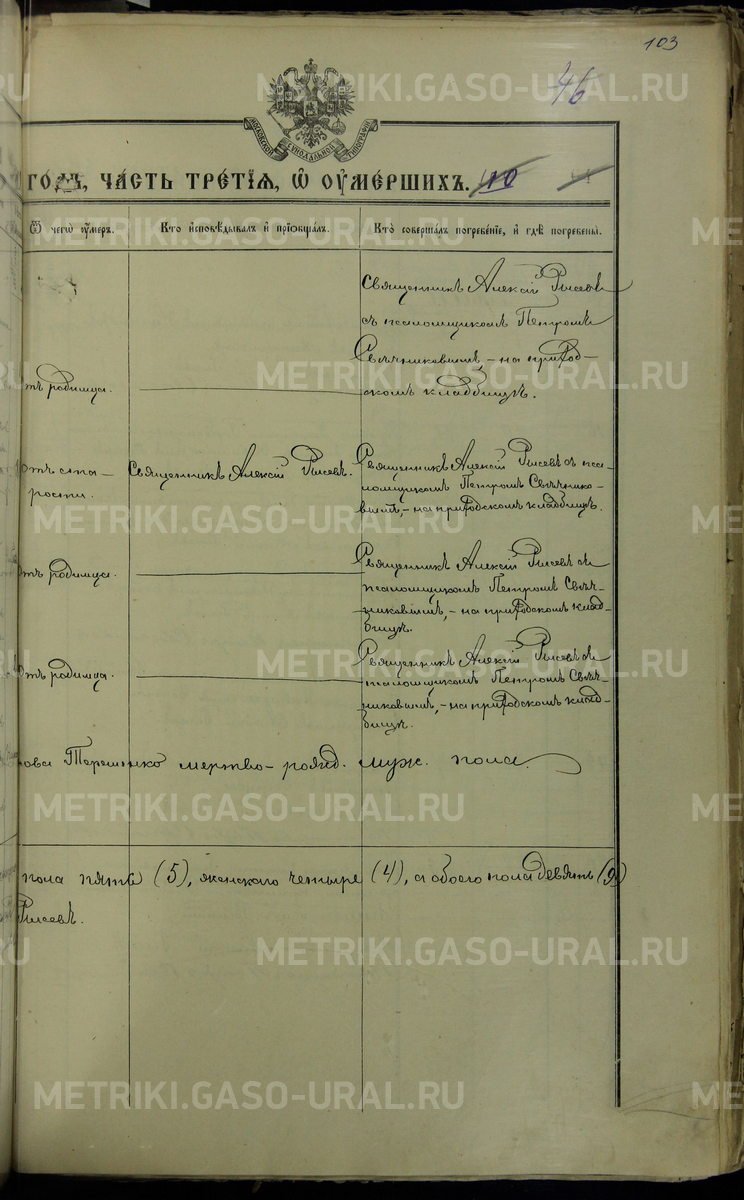 103
46
МОСКОВСКОЙ СѴНОДАЛЬНОЙ ТИПОГРАФІИ
ГОДЪ, ЧА́СТЬ ТРЕ́ТІѦ, Ѡ҆ ОУ҆МЕ́РШИХЪ. 40
Ѿ чегѡ̀ оу҆́меръ.
Кто̀ и҆сповѣ́дывалъ и҆ прїѡбща́лъ.
Кто̀ соверша́лъ погребе́нїе, и҆ гдѣ̀ погребены̀.
Священникъ Алексій Рысевъ
съ псаломщикомъ Петромъ
Свѣчниковымъ,-на приход-
тъ родимца.
скомъ кладбищѣ.
отъ ста-
рости.
Священникъ Алексій Рысевъ.
Священникъ Алексій Рысевъ съ пса-
ломщикомъ Петромъ Свѣчнико-
вымъ,-на приходскомъ кладбищѣ.
отъ родимца.
Священникъ Алексій Рысевъ съ
псаломщикомъ Петромъ Свѣч-
никовымъ,-на приходскомъ клад-
бищѣ.
отъ родимца.
Священникъ Алексій Рысевъ съ
псаломщикомъ Петромъ Свѣч-
никовымъ,-на приходскомъ клад-
бищѣ.
ова Терешенко мертво-рожд. муж. пола.
пола пять (5), женскаго четыре (4), а обоего пола девять (9)
Рысевъ.
METRIKI.GASO-URAL.RU
METRIKI.GASO-URAL.RU
METRIKI.GASO-URAL.RU
METRIKI.GASO-URAL.RU
METRIKI.GASO-URAL.RU
METRIKI.GASO-URAL.RU
METRIKI.GASO-URAL.RU
METRIKI.GASO-URAL.RU